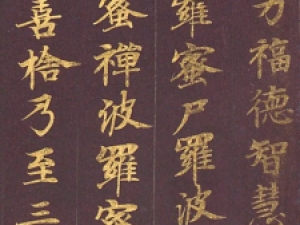 福德智慧
羅蜜尸羅波
蜜禪波羅蜜
喜捨乃至三